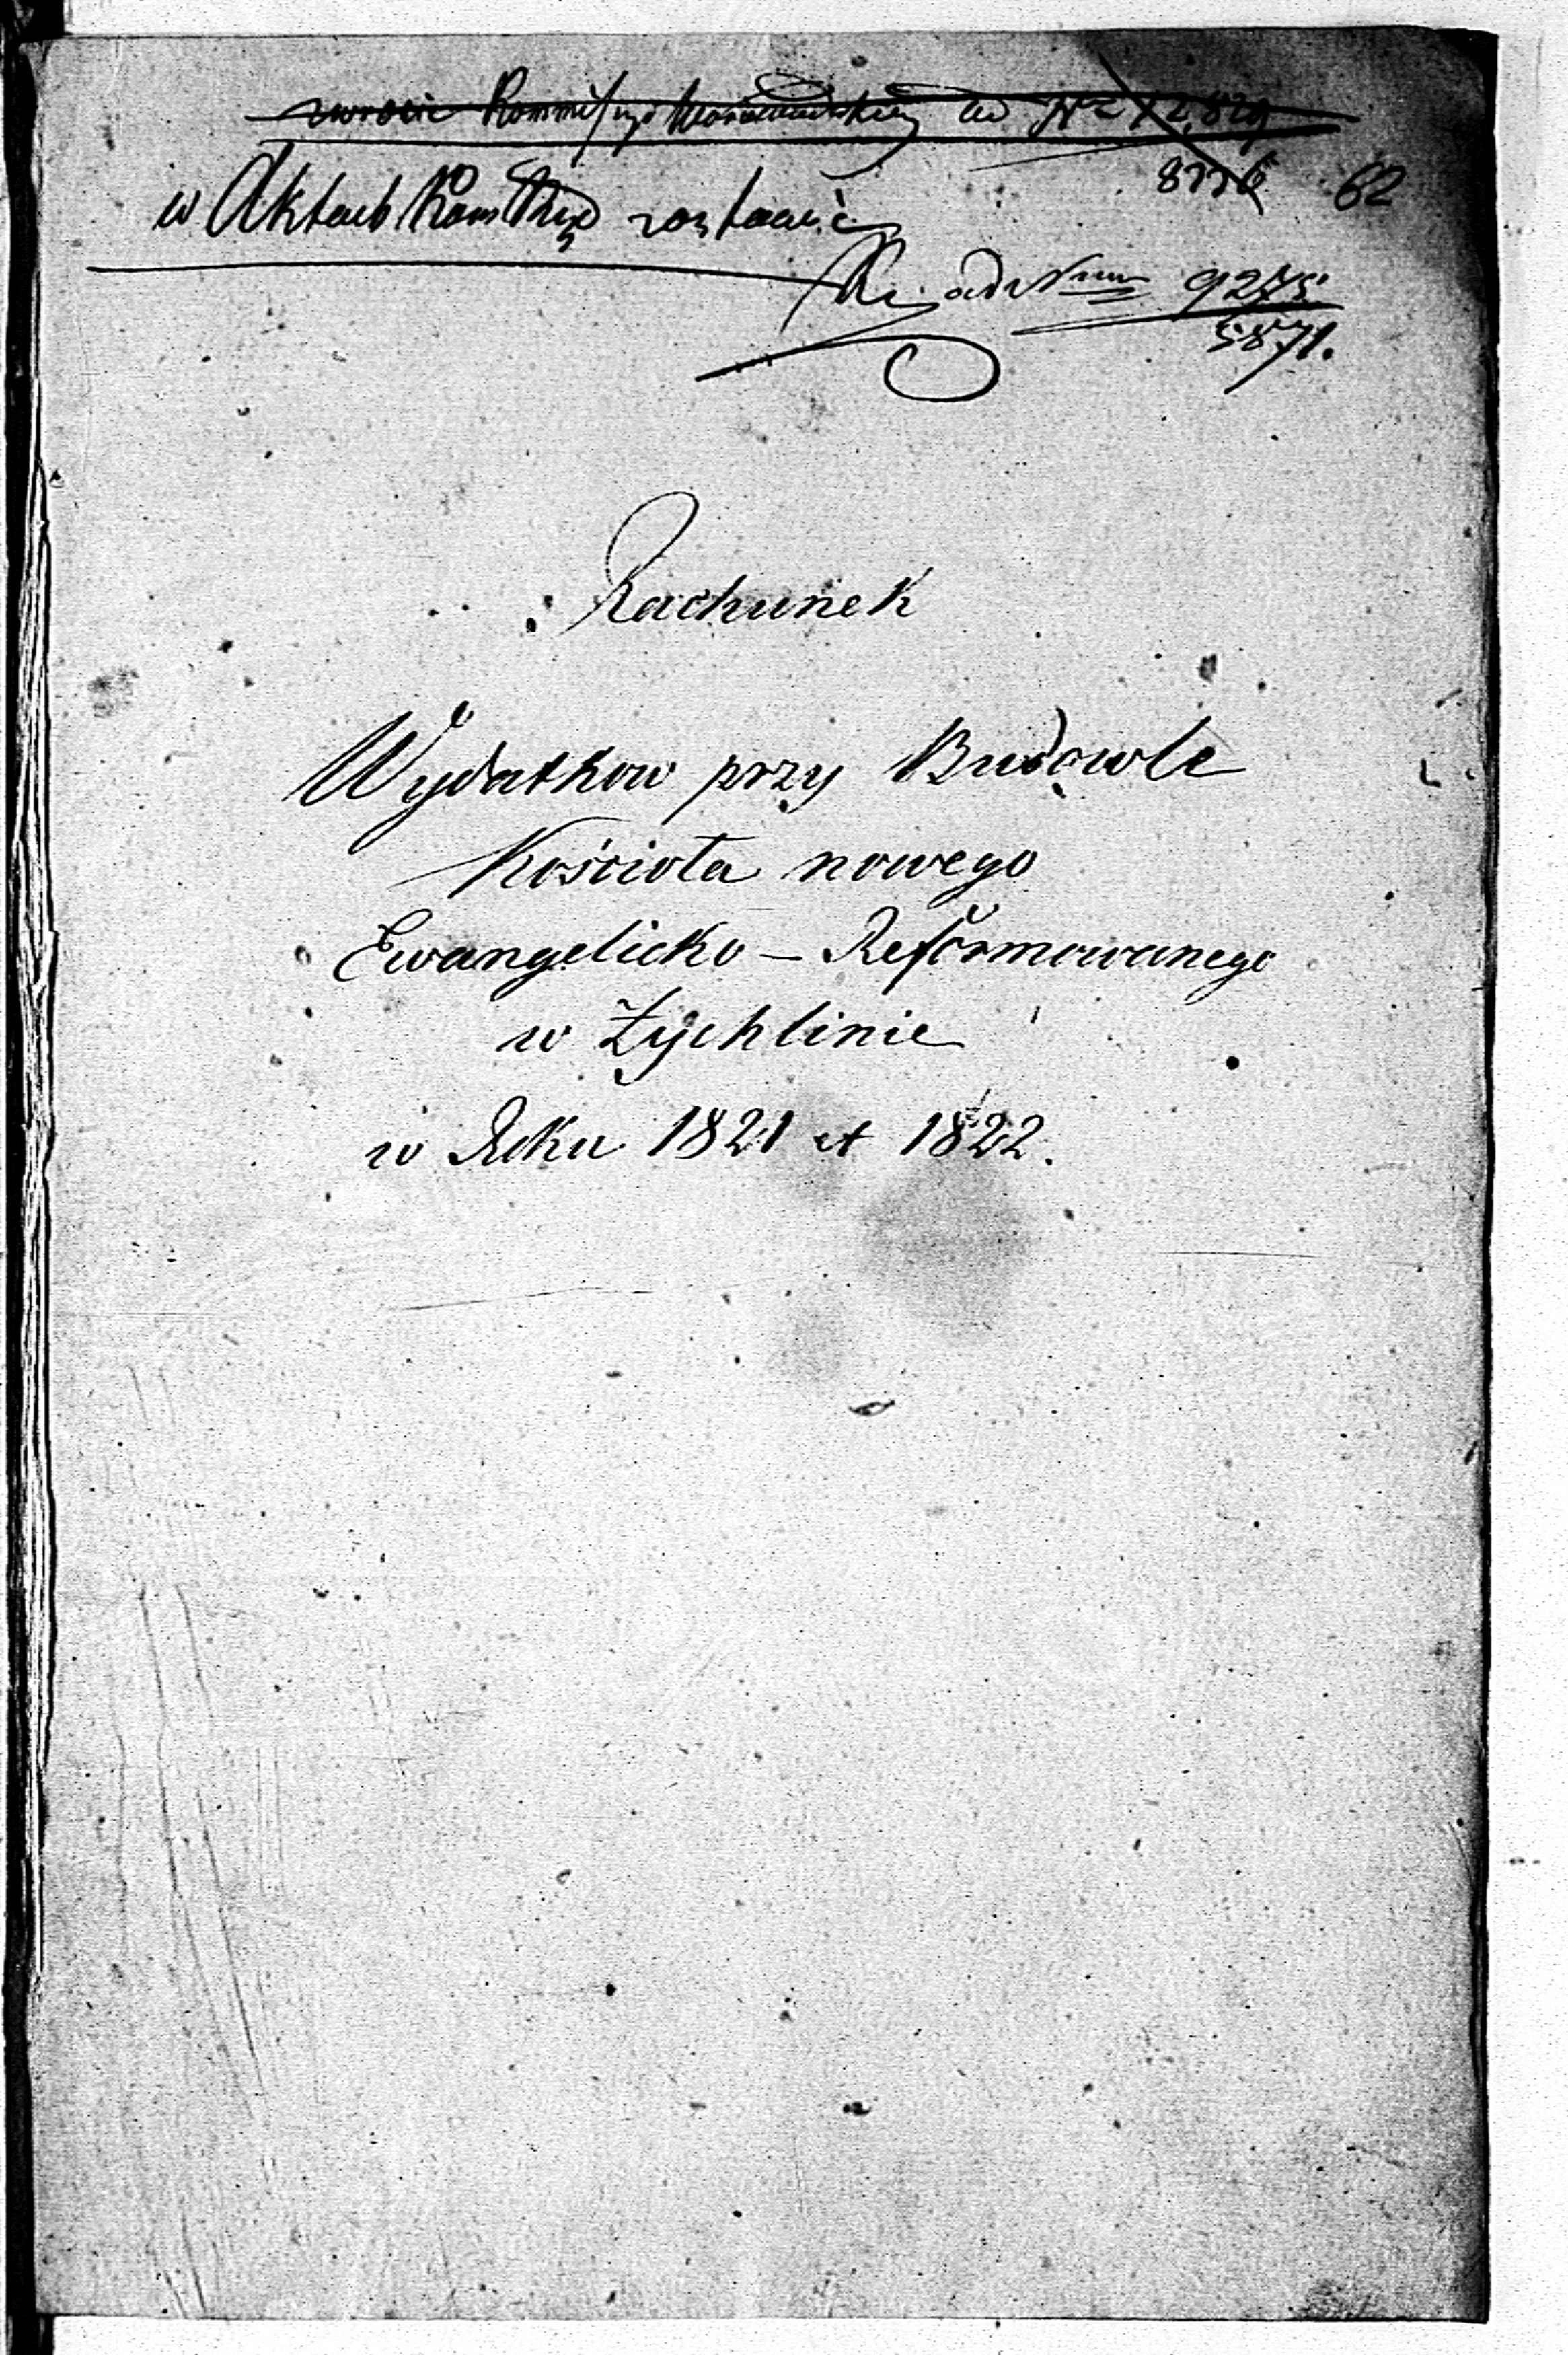 zwrócić Kommissyi Woiewódzkiey
8776 62
w Aktach Kom Rząd zostawić
ad Num 9275
5871.
Rachunek
Wydatkow przy Budowle
Kościoła nowego
Ewangelicko – Reformowanego
w Żychlinie
w Roku 1821 et 1822.